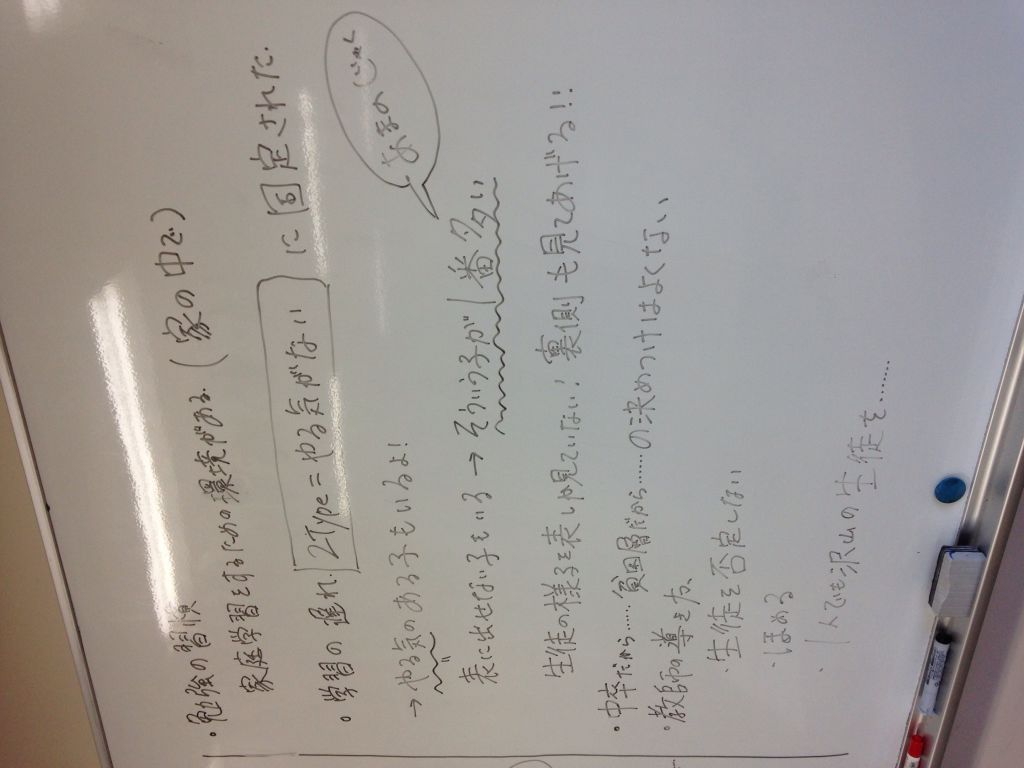 ・勉強の習慣
家庭学習をするための環境がある。(家の中で)
・学習の遅れ 2Type=やる気がない に固定された
→やる気のある子もいるよ!
表に出せない子もいる→そういう子が1番多い
生徒の様子を表しか見ていない!裏側も見てあげる!!
・中卒だから……貧困層だから……の決めつけはよくない、
・教師の導き方、
・生徒を否定しない
・ほめる
・1人でも沢山の生徒を……